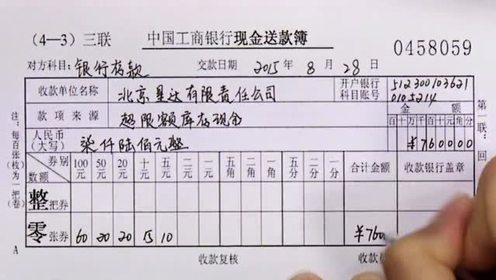 (4—3) 三联 中国工商银行现金送款簿 0458059
对方科目: 银行存款 交款日期 2015 年 8 月 28 日
收款单位名称 北京星达有限责任公司 开户银行科目账号 512300103621 0105214
款项来源 超限额库存现金 金额
人民币(大写) 柒仟陆佰元整 百十万千百十元角分 ¥760000
券别 数额 100元 50元 20元 十元 五元 二元 一元 五角 二角 一角 五分 二分 一分 合计金额 收款银行盖章
整 把券
零 张券 60 20 20 15 10 ¥760
收款复核 收款
注:每百张(枚)为一把(卷)
A
第一联:回